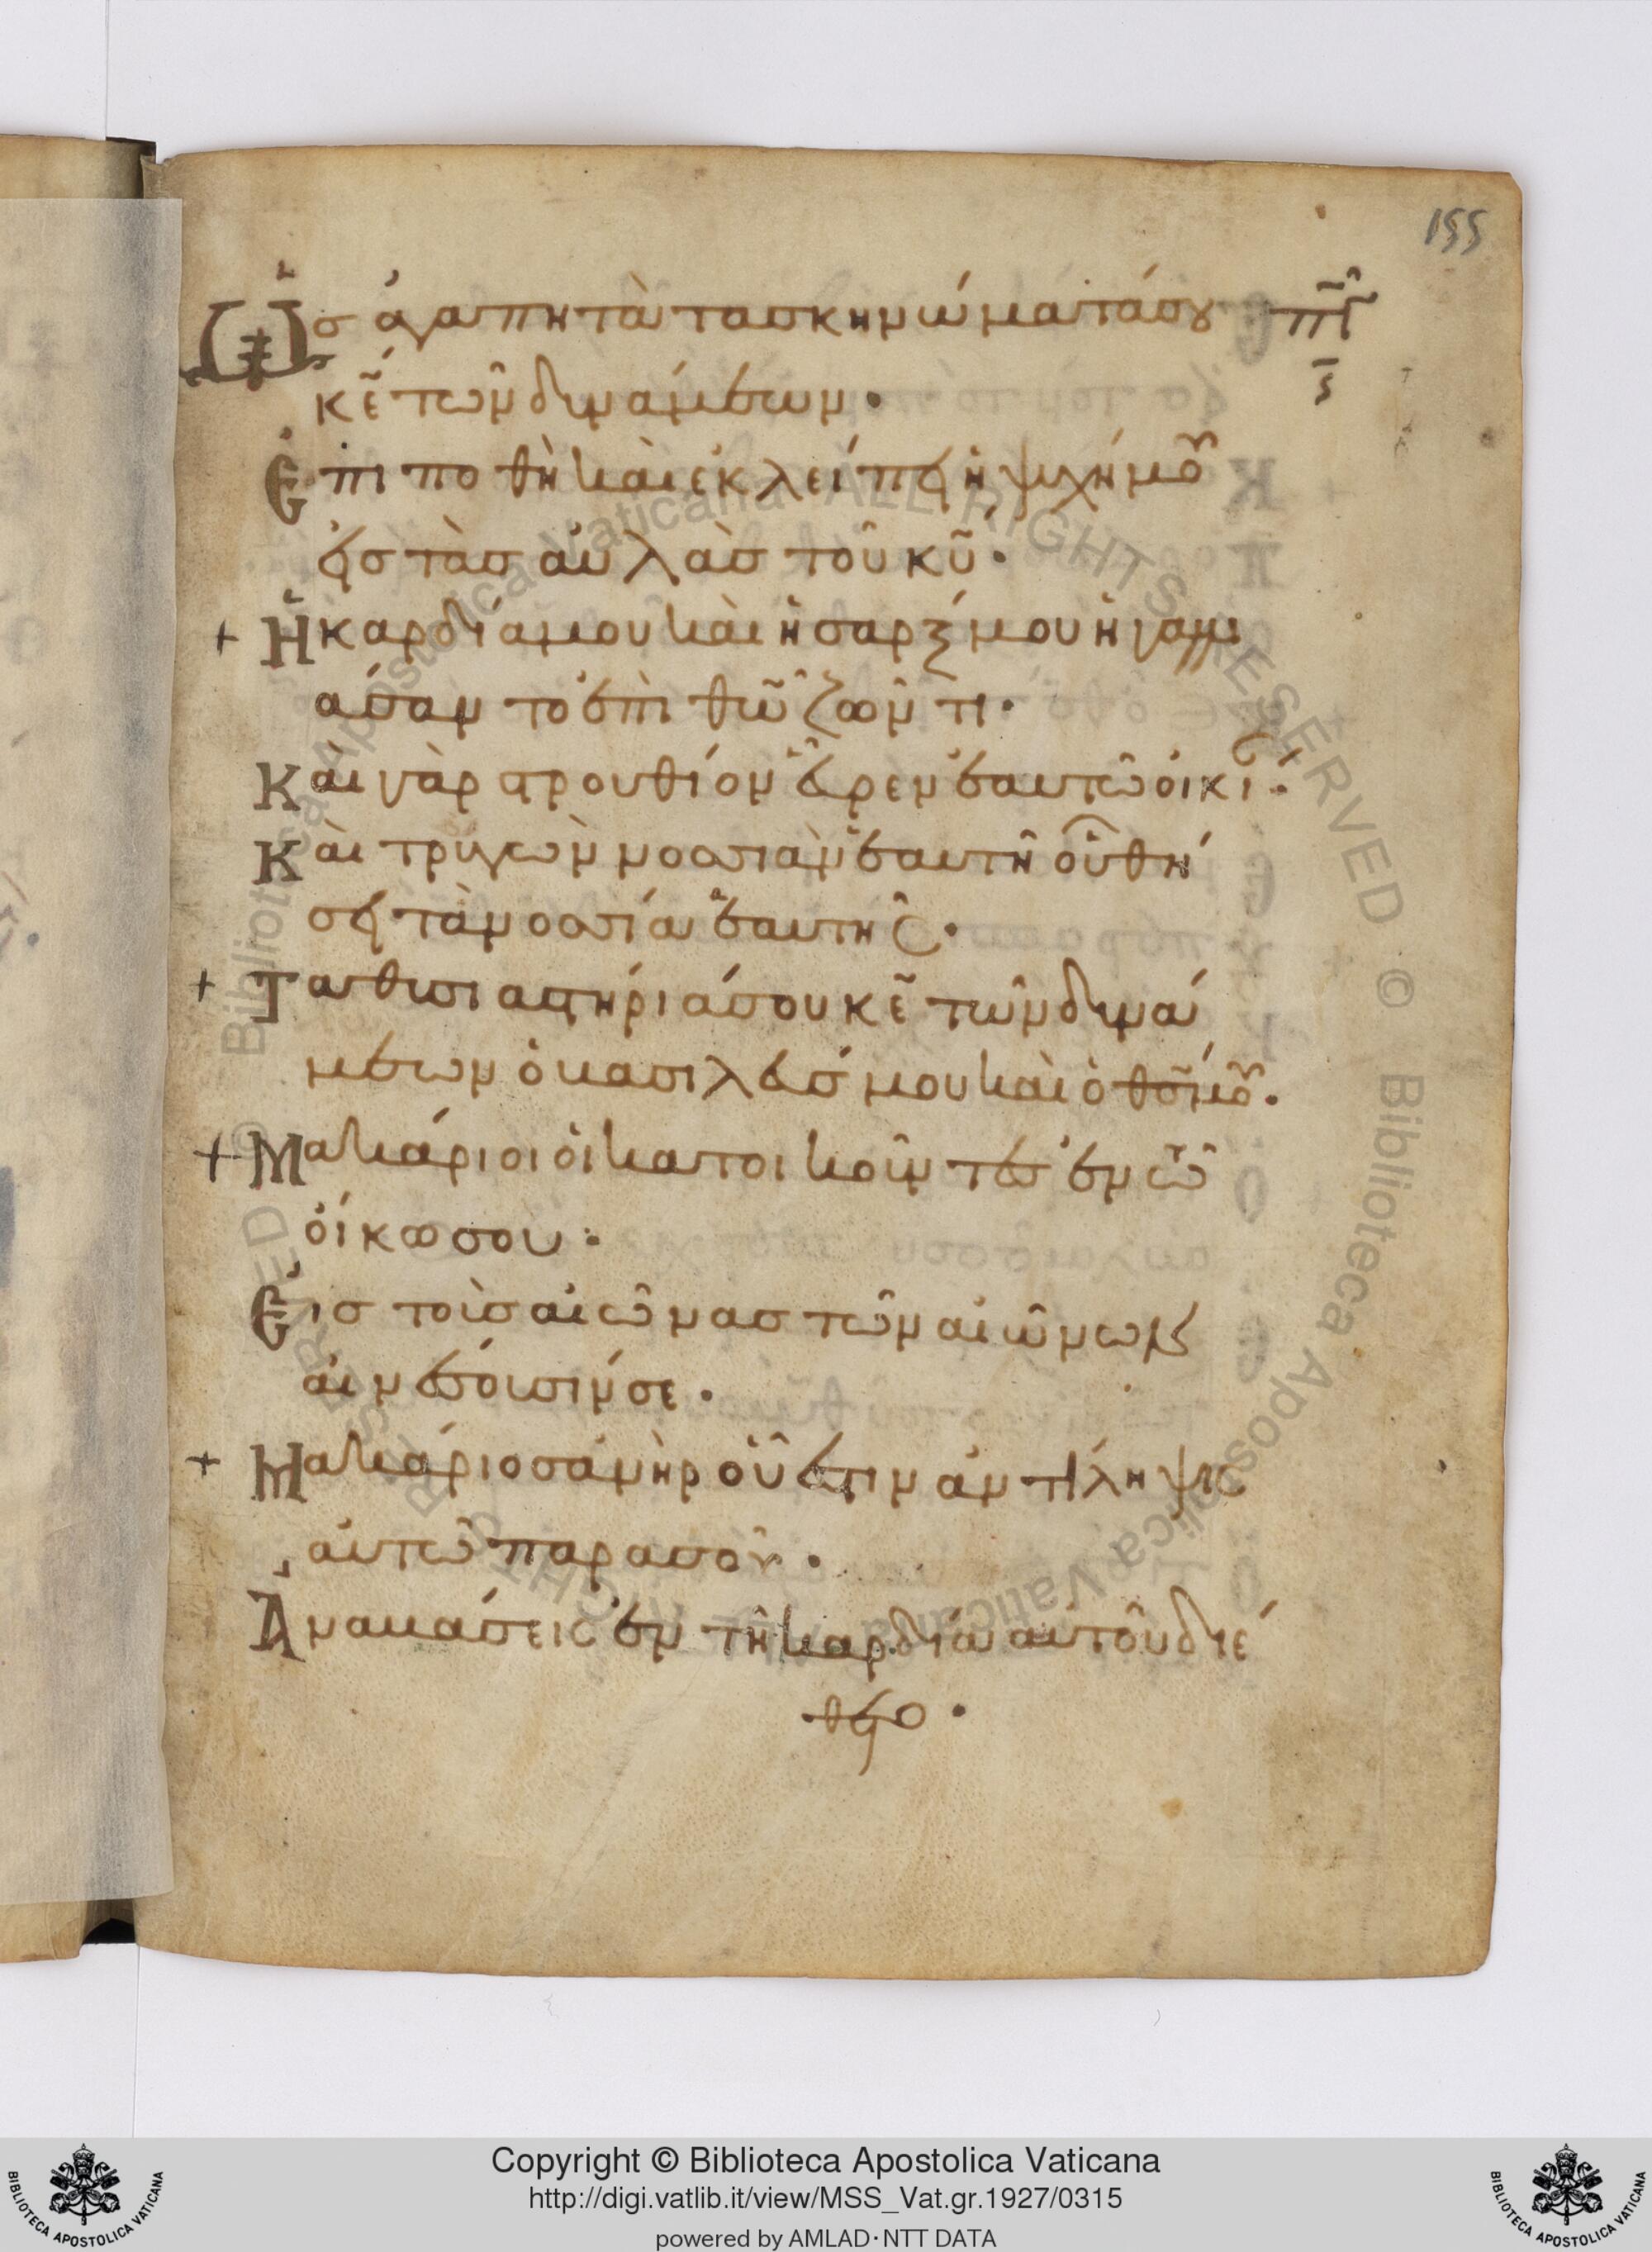 155
Ὡσ ἀγαπητὰ τα σκηνώματά σου πγ̑
κ̅ε̅ τῶν δυνάμεων·
Ἐπιποθῆ καὶ ἐκλείπει ἡ ψυχή μου
εἰσ τὰσ αὐλὰσ τοῦ κ̅υ̅·
+ Ἡ καρδία μου καὶ ἡ σαρξ μου ἠγαλλι
άσαντο ἐπὶ θ̅ν̅ ζῶντι·
Καὶ γὰρ στρουθίον εὗρεν ἑαυτῶ οἰκί·
Καὶ τρυγὼν νοσσιὰν ἑαυτῆ οὗ θή
σει τὰ νοσσία ἑαυτῆς·
+ Τα θυσιαστήριά σου κ̅ε̅ τῶν δυνά
μεων ὁ βασιλεύσ μου καὶ ὁ θ̅σ̅ μου·
+ Μακάριοι οἱ κατοικοῦντεσ ἐν τῶ
οἴκω σου·
Εἰσ τοὺσ αἰῶνασ τῶν αἰώνων
αἰνέσουσίν σε·
+ Μακάριοσ ἀνὴρ οὗ ἐστιν ἀντίληψις
αὐτῶ παρα σοῦ·
Ἀναβάσεις ἐν τῆ καρδία αὐτοῦ διέ
θετο·
Copyright © Biblioteca Apostolica Vaticana
http://digi.vatlib.it/view/MSS_Vat.gr.1927/0315
powered by AMLAD·NTT DATA
BIBLIOTECA APOSTOLICA VATICANA
BIBLIOTECA APOSTOLICA VATICANA